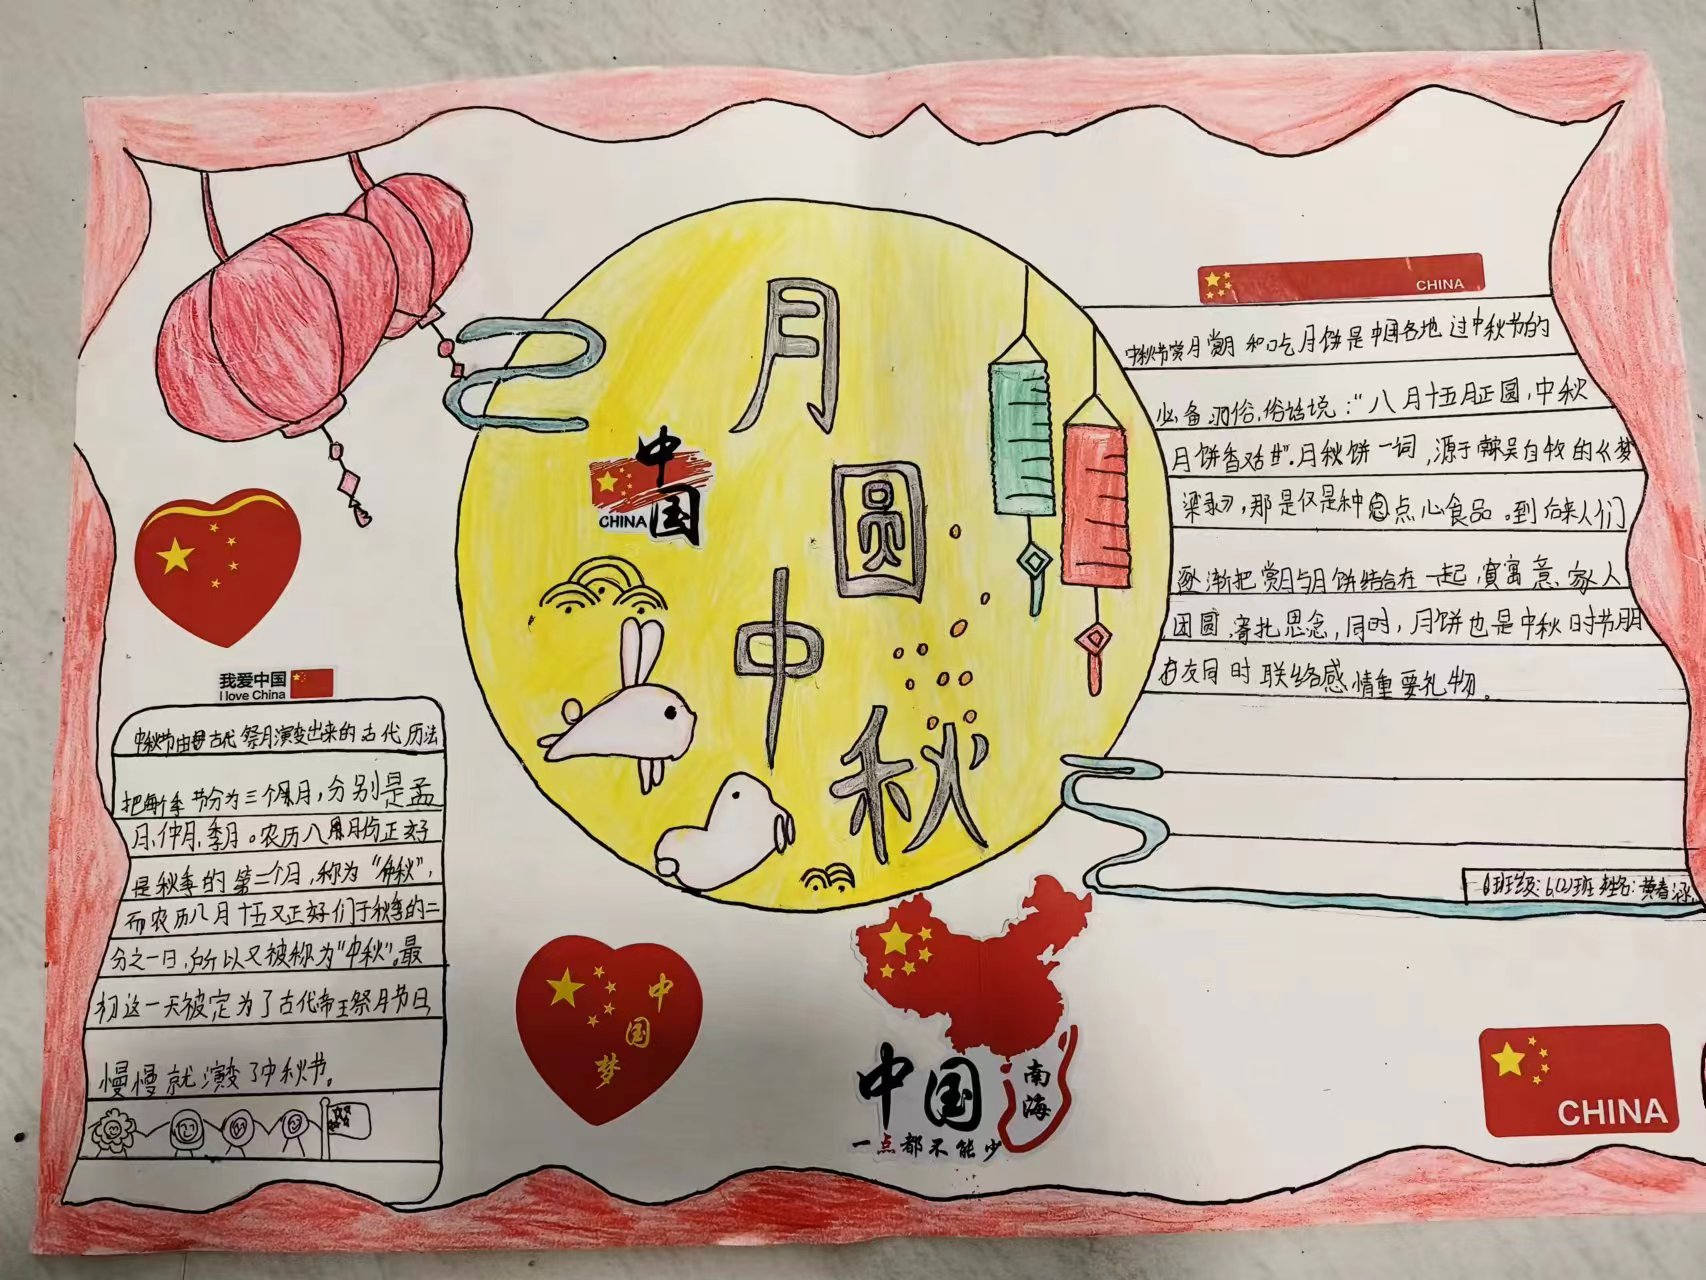 月圆中秋
中国
CHINA
我爱中国
I love China
中秋节由古代祭月演变出来的古代历法
把每个季节分为三个月,分别是孟
月、仲月、季月。农历八月份正好
是秋季的第二个月,称为“仲秋”,
而农历八月十五又正好们于秋季的二
分之一日,所以又被称为“中秋”。最
初这一天被定为了古代帝王祭月节日
慢慢就演变了中秋节。
CHINA
中秋节赏月赏月和吃月饼是中国各地过中秋节的
必备习俗,俗话说:“八月十五月正圆,中秋
月饼香又甜”.月秋饼一词,源于吴自牧的《梦
梁录》,那是仅是种点心食品。到后来人们
逐渐把赏月与月饼结合在一起,寓意家人
团圆,寄托思念,同时,月饼也是中秋时节朋
友同时联络感情重要礼物。
班级:6(2)班 姓名:黄春
中国梦
中国
南海
一点都不能少
CHINA